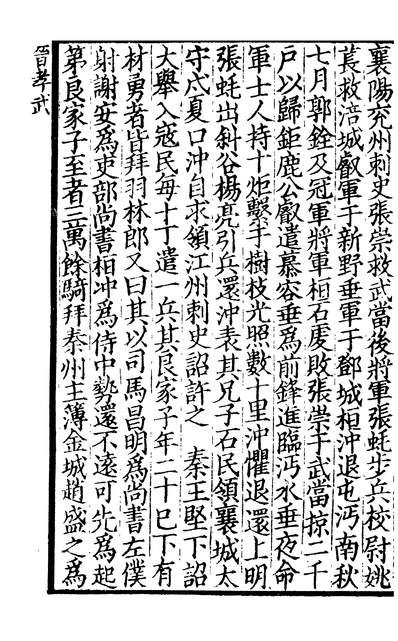 襄陽兖州刺史張崇救武當後將軍張蚝步兵校尉姚
萇救涪城叡軍于新野垂軍于鄧城桓沖退屯沔南秋
七月郭銓及冠軍將軍桓石䖍敗張崇于武當掠二千
戶以歸鉅鹿公叡遣慕容垂爲前鋒進臨沔水垂夜命
軍士人持十炬繫于樹枝光照數十里沖懼退還上明
張蚝出斜谷楊亮引兵還沖表其兄子石民領襄城太
守戍夏口沖自求領江州刺史詔許之　秦王堅下詔
大舉入寇民每十丁遣一兵其良家子年二十已下有
材勇者皆拜羽林郎又曰其以司馬昌明爲尚書左僕
射謝安爲吏部尚書桓沖爲侍中勢還不遠可先爲起
第良家子至者三萬餘騎拜秦州主簿金城趙盛之爲
晉孝武